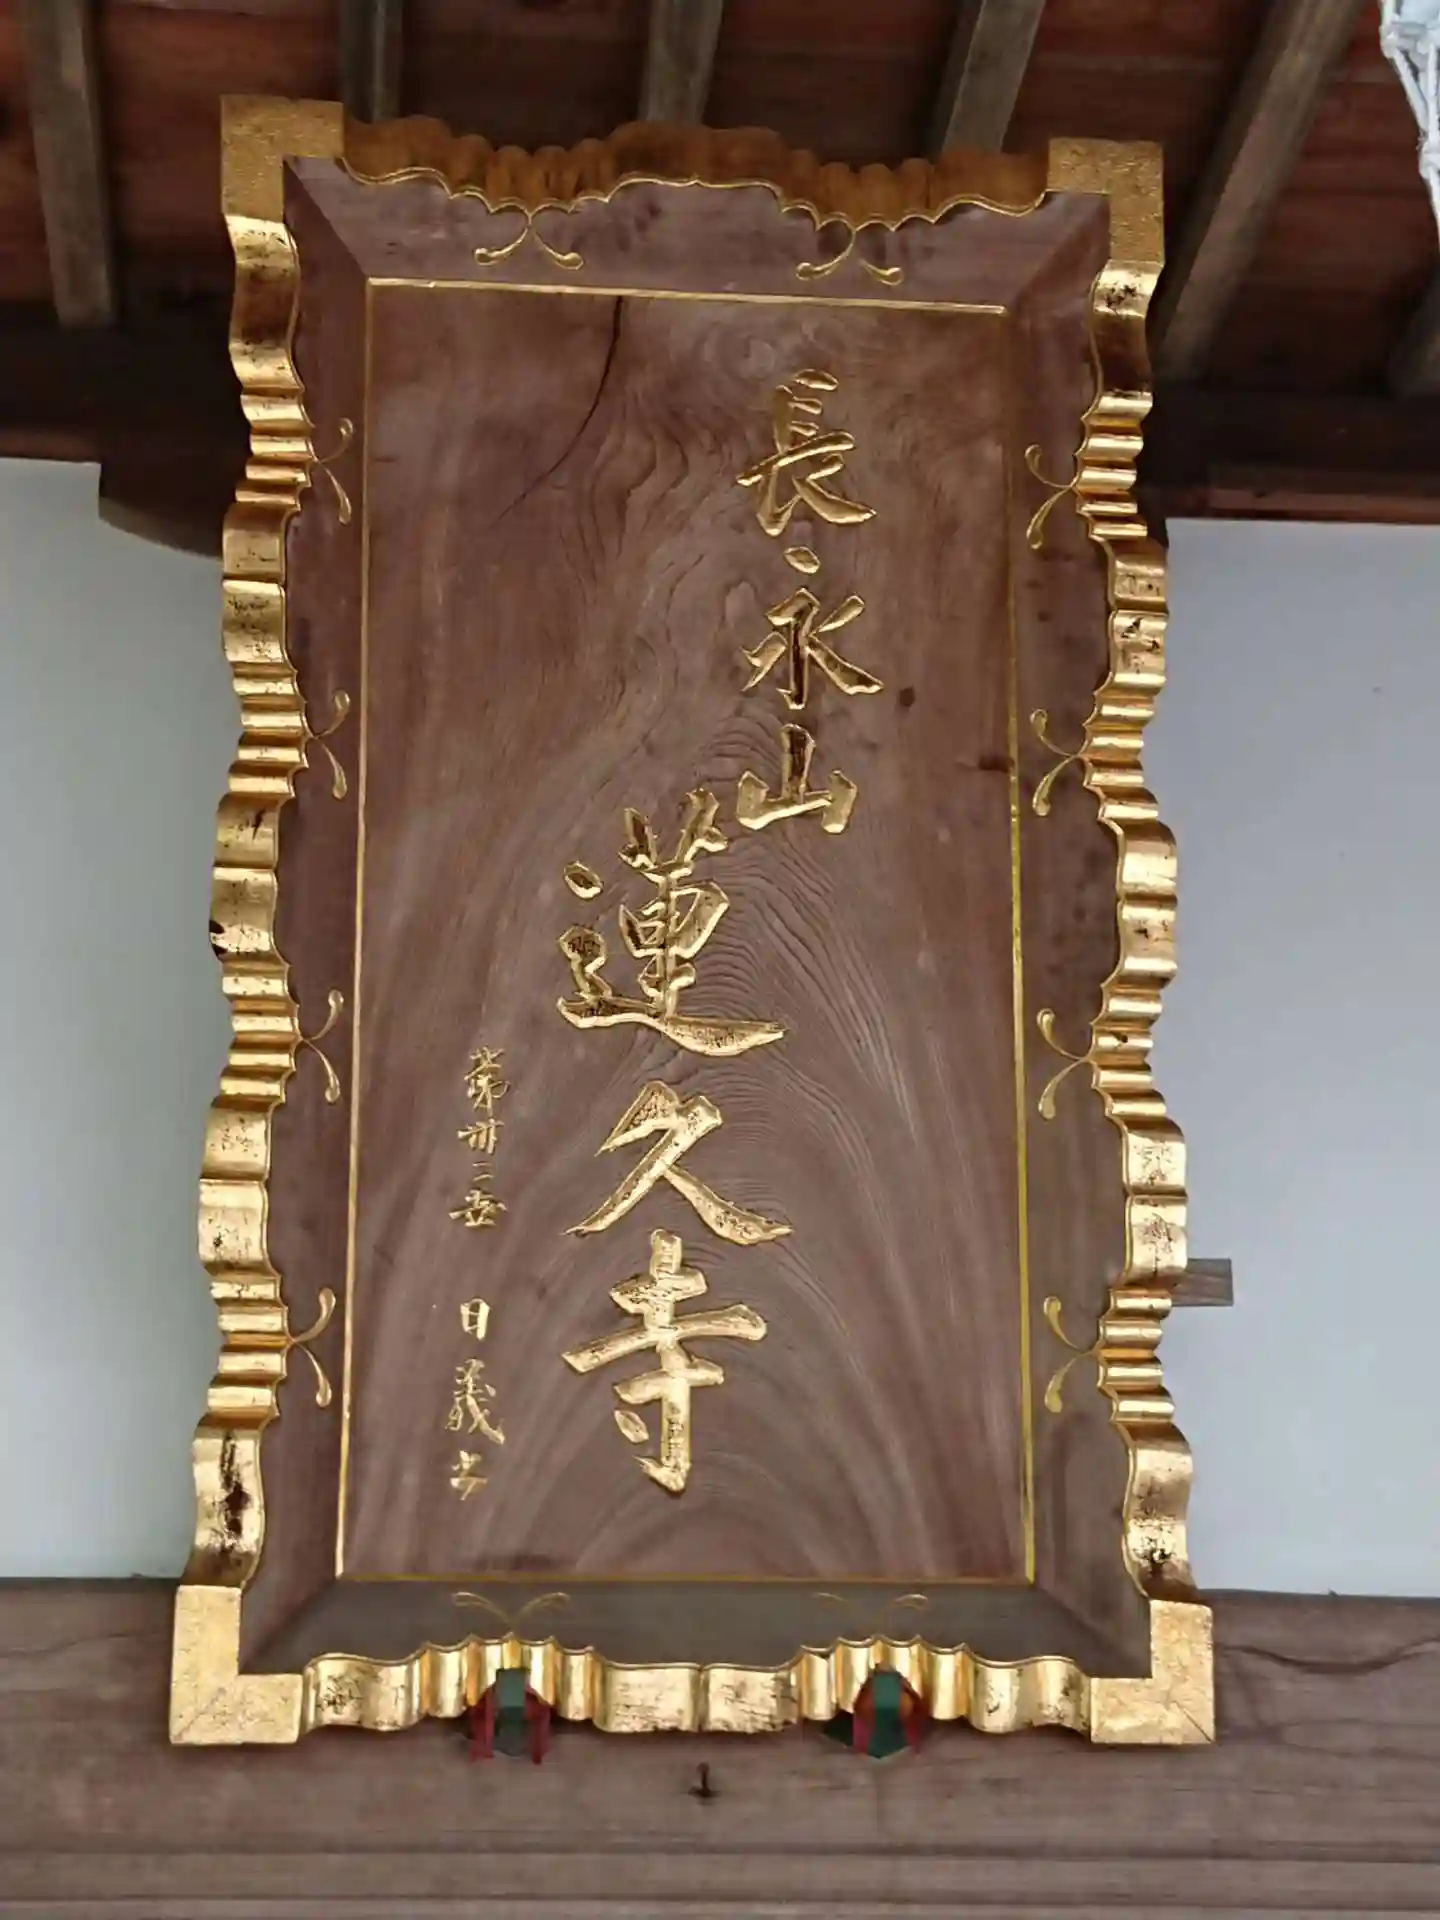 長永山
蓮久寺
第丗二世 日義